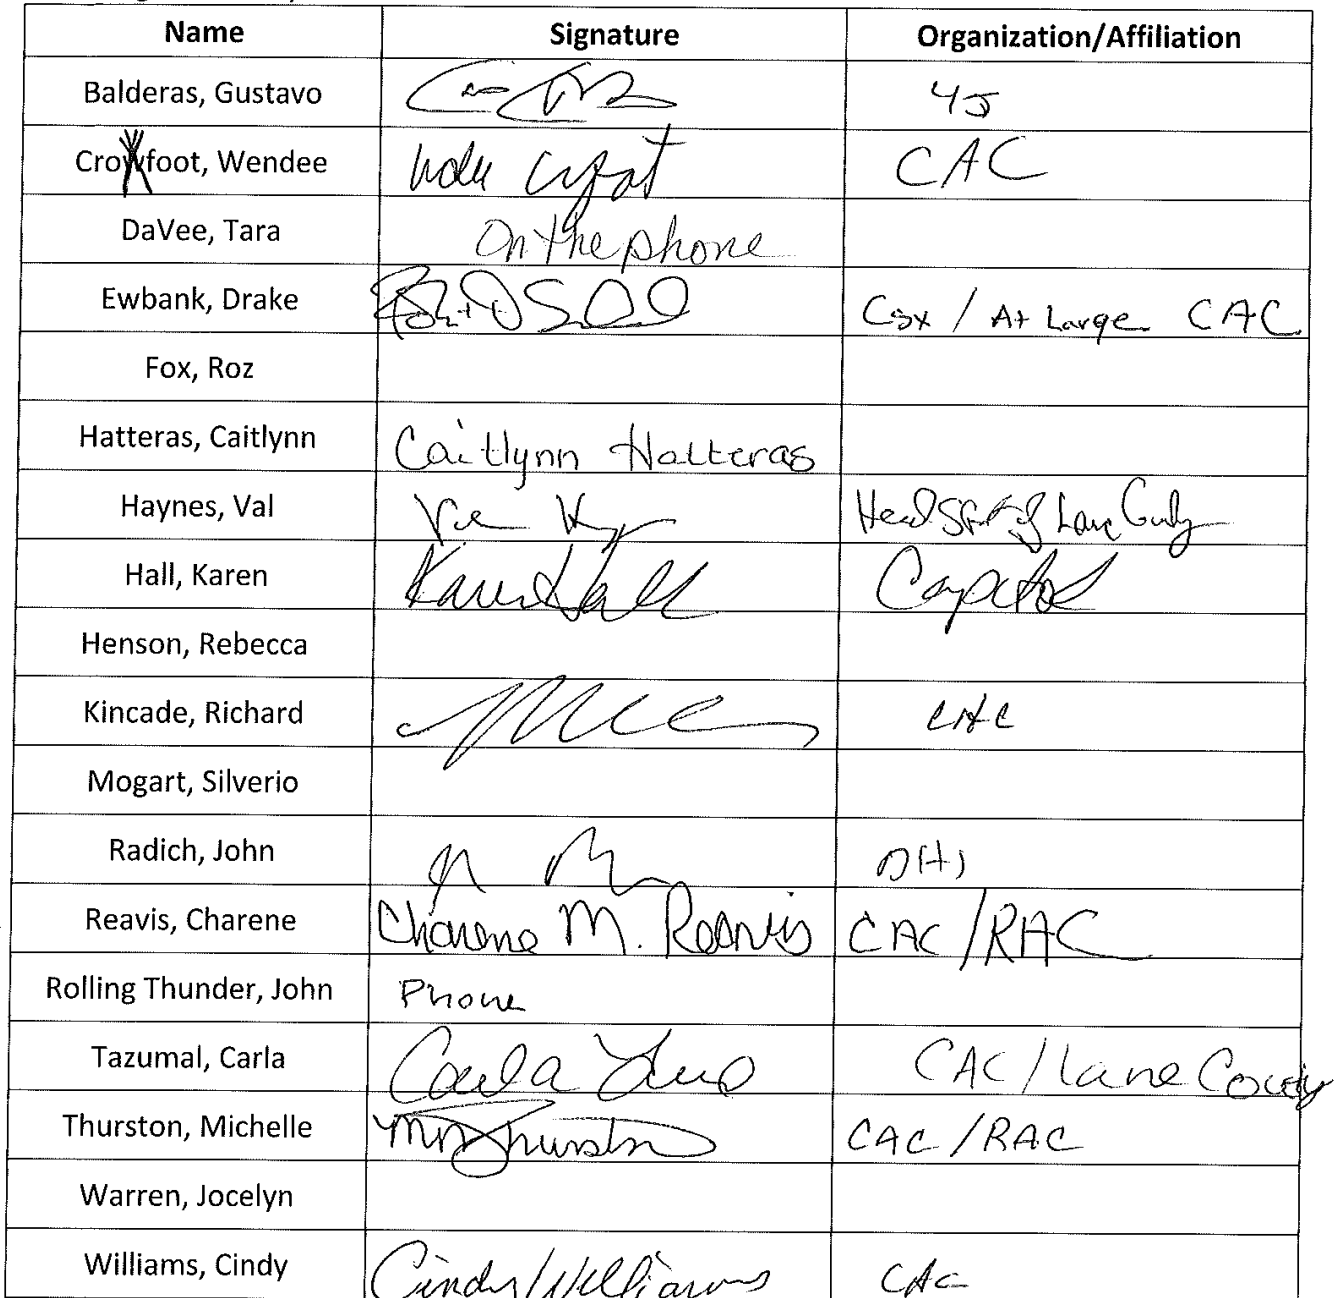 Name Signature Organization/Affiliation
Balderas, Gustavo 4J
Crowfoot, Wendee CAC
DaVee, Tara On the phone
Ewbank, Drake / At Large CAC
Fox, Roz
Hatteras, Caitlynn Caitlynn Hatteras
Haynes, Val Head Start of Lane County
Hall, Karen Karen Hall Capitol
Henson, Rebecca
Kincade, Richard CAC
Mogart, Silverio
Radich, John
Reavis, Charene Charene M. Reavis CAC/RAC
Rolling Thunder, John Phone
Tazumal, Carla Carla CAC/Lane County
Thurston, Michelle Thurston CAC/RAC
Warren, Jocelyn
Williams, Cindy Cindy Williams CAC